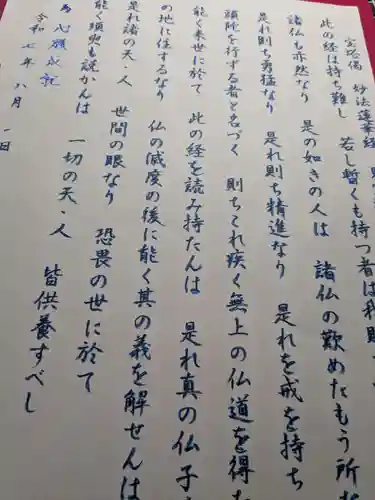 宝塔偈 妙法蓮華経
此の経は持ち難し 若し暫くも持つ者は我則
諸仏も亦然なり 是の如きの人は 諸仏の歎めたもう所
是れ則ち勇猛なり 是れ則ち精進なり 是れを戒を持ち
頭陀を行ずる者と名づく 則ちこれ疾く無上の仏道を得
能く来世に於て 此の経を読み持たんは 是れ真の仏子
の地に住するなり 仏の滅度の後に能く其の義を解せんは
是れ諸の天・人 世間の眼なり 恐畏の世に於て
能く須臾も説かんは 一切の天・人 皆供養すべし
為 心願成就
令和七年 八月 一日